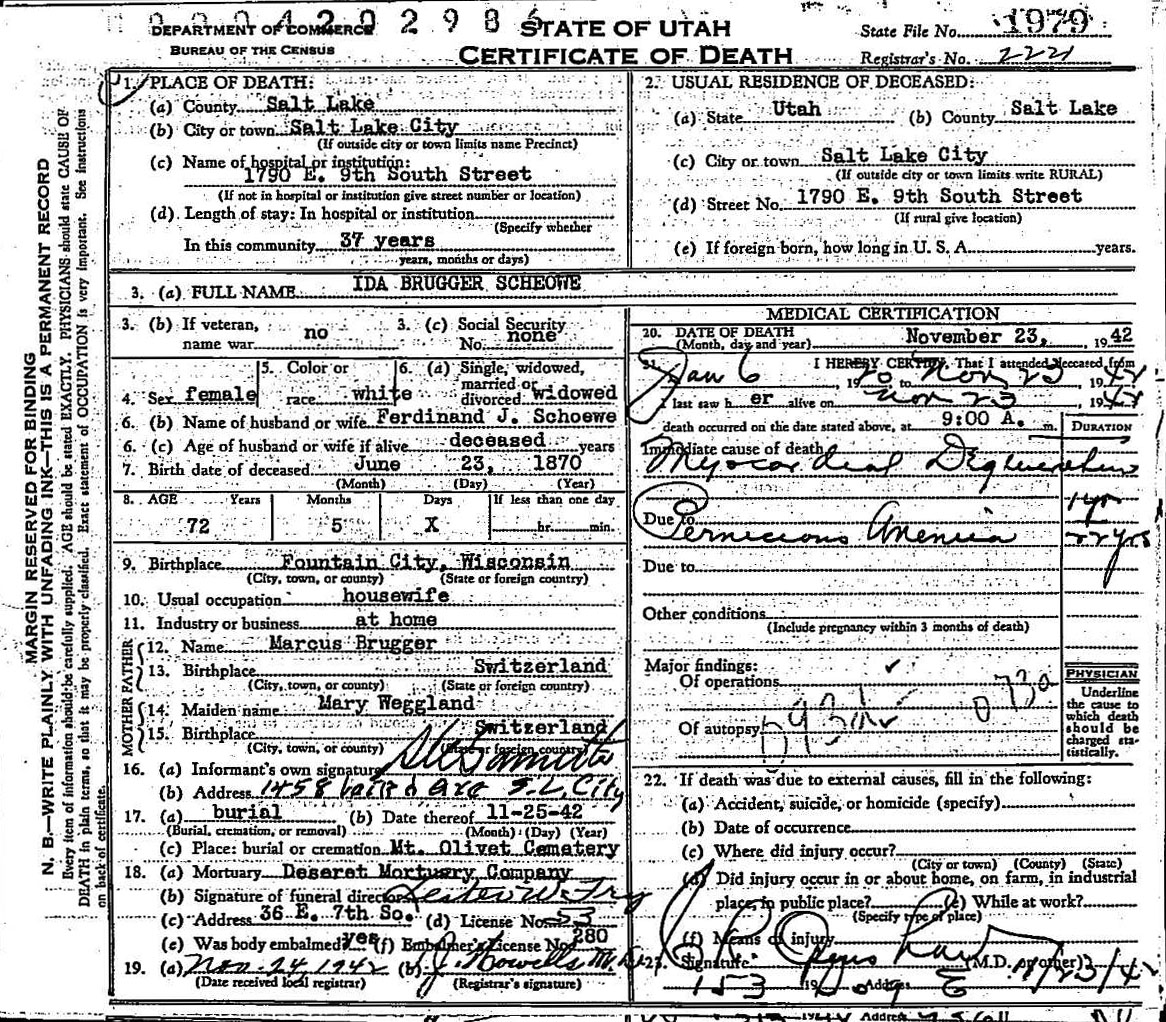 DEPARTMENT OF COMMERCE
BUREAU OF THE CENSUS
STATE OF UTAH
CERTIFICATE OF DEATH
State File No. 1979
Registrar's No. 2221
MARGIN RESERVED FOR BINDING
N. B.—WRITE PLAINLY WITH UNFADING INK—THIS IS A PERMANENT RECORD
Every item of information should be carefully supplied. AGE should be stated EXACTLY. PHYSICIANS should state CAUSE OF
DEATH in plain terms, so that it may be properly classified. Exact statement of OCCUPATION is very important. See instructions
on back of certificate.
1. PLACE OF DEATH:
(a) County Salt Lake
(b) City or town Salt Lake City
(If outside city or town limits name Precinct)
(c) Name of hospital or institution:
1790 E. 9th South Street
(If not in hospital or institution give street number or location)
(d). Length of stay: In hospital or institution
(Specify whether
In this community 37 years
years, months or days)
2. USUAL RESIDENCE OF DECEASED:
(a) State Utah (b) County Salt Lake
(c) City or town Salt Lake City
(If outside city or town limits write RURAL)
(d) Street No. 1790 E. 9th South Street
(If rural give location)
(e) If foreign born, how long in U. S. A. years.
3. (a) FULL NAME IDA BRUGGER SCHEOWE
3. (b) If veteran, name war no
3. (c) Social Security No. none
4. Sex female
5. Color or race white
6. (a) Single, widowed, married or divorced widowed
6. (b) Name of husband or wife Ferdinand J. Schoewe
6. (c) Age of husband or wife if alive deceased years
7. Birth date of deceased June 23, 1870
(Month) (Day) (Year)
8. AGE Years Months Days If less than one day
72 5 X hr. min.
9. Birthplace Fountain City, Wisconsin
(City, town, or county) (State or foreign country)
10. Usual occupation housewife
11. Industry or business at home
FATHER
12. Name Marcus Brugger
13. Birthplace Switzerland
(City, town, or county) (State or foreign country)
MOTHER
14. Maiden name Mary Weggland
15. Birthplace Switzerland
(City, town, or county) (State or foreign country)
16. (a) Informant's own signature
(b) Address 1458 Ave S.L. City
17. (a) burial (b) Date thereof 11-25-42
(Burial, cremation, or removal) (Month) (Day) (Year)
(c) Place: burial or cremation Mt. Olivet Cematery
18. (a) Mortuary Deseret Mortuary Company
(b) Signature of funeral director
(c) Address 36 E. 7th So. (d) License No. 53
(e) Was body embalmed yes (f) Embalmer's License No. 280
19. (a) Nov. 24, 1942 (b) J. Howells M.D.
(Date received local registrar) (Registrar's signature)
MEDICAL CERTIFICATION
20. DATE OF DEATH November 23, 1942
(Month, day and year)
21. I HEREBY CERTIFY, That I attended deceased from
Jan 6, 19 to Nov 23 1942
I last saw her alive on Nov 23 1942
death occurred on the date stated above, at 9:00 A. m.
DURATION
Immediate cause of death
Myocardial Degeneration
1 yr
Due to
Pernicious Anemia
yrs
Due to
Other conditions
(Include pregnancy within 3 months of death)
Major findings:
Of operations
Of autopsy
073a
PHYSICIAN
Underline the cause to which death should be charged statistically.
22. If death was due to external causes, fill in the following:
(a) Accident, suicide, or homicide (specify)
(b) Date of occurrence
(c) Where did injury occur?
(City or town) (County) (State)
(d) Did injury occur in or about home, on farm, in industrial
place, in public place? (e) While at work?
(Specify type of place)
(f) Means of injury
23. Signature (M.D. or other) 11/23/42
Address